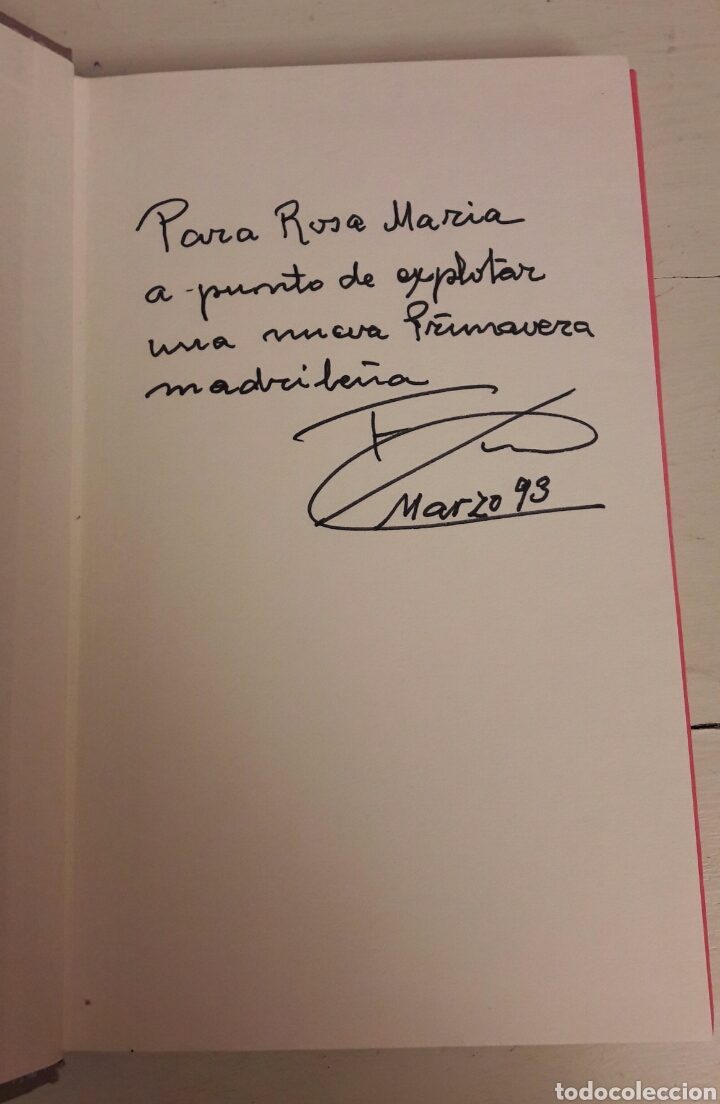 Para Rosa Maria
a punto de explotar
una nueva Primavera
madrileña
Marzo 93
todocoleccion